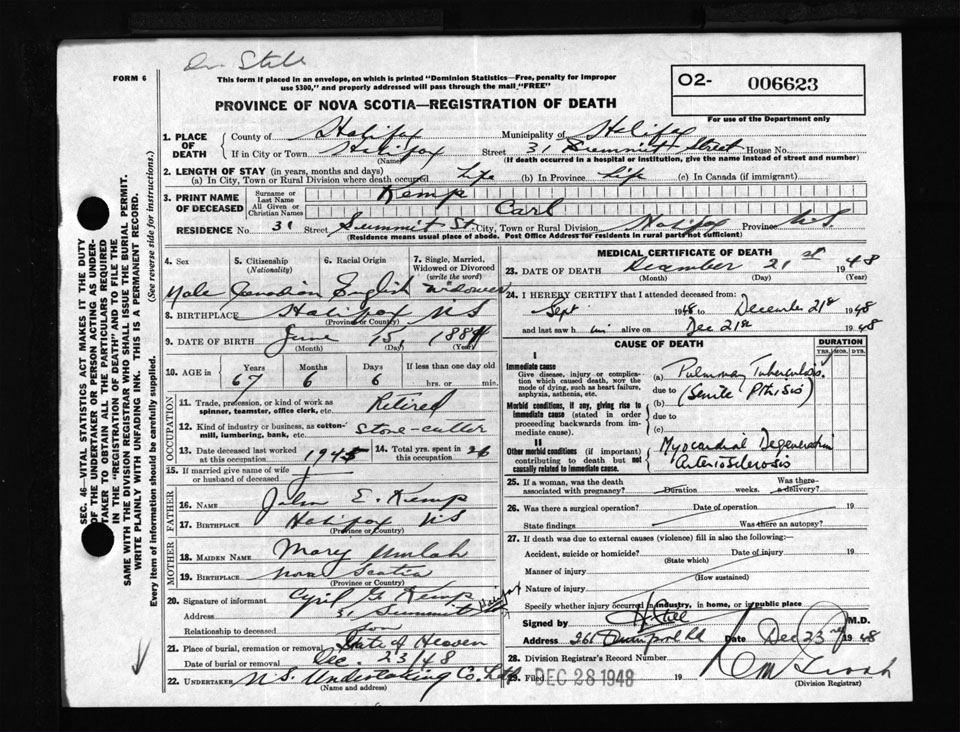 Dr. Stall
FORM 6
This form if placed in an envelope, on which is printed "Dominion Statistics—Free, penalty for improper
use $300," and properly addressed will pass through the mail "FREE"
PROVINCE OF NOVA SCOTIA—REGISTRATION OF DEATH
O2- 006623
For use of the Department only
1. PLACE OF DEATH County of Halifax Municipality of Halifax
If in City or Town Halifax Street 31 Summit Street House No.
(Name) (If death occurred in a hospital or institution, give the name instead of street and number)
2. LENGTH OF STAY (in years, months and days)
(a) In City, Town or Rural Division where death occurred Life (b) In Province Life (c) In Canada (if immigrant)
3. PRINT NAME OF DECEASED Surname or Last Name Kemp
All Given or Christian Names Carl
RESIDENCE No. 31 Street Summit St. City, Town or Rural Division Halifax Province N.S.
(Residence means usual place of abode. Post Office Address for residents in rural parts not sufficient)
4. Sex 5. Citizenship (Nationality) 6. Racial Origin 7. Single, Married, Widowed or Divorced (write the word)
Male Canadian English widower
8. BIRTHPLACE Halifax NS
(Province or Country)
9. DATE OF BIRTH June 15, 1881
(Month) (Day) (Year)
10. AGE in Years Months Days If less than one day old
67 6 6 hrs. or min.
OCCUPATION
11. Trade, profession or kind of work as spinner, teamster, office clerk, etc. Retired
12. Kind of industry or business, as cotton-mill, lumbering, bank, etc. Stone-cutter
13. Date deceased last worked at this occupation 1945 14. Total yrs. spent in this occupation 26
15. If married give name of wife or husband of deceased
FATHER
16. Name John E. Kemp
17. Birthplace Halifax NS
(Province or Country)
MOTHER
18. Maiden Name Mary Umlah
19. Birthplace Nova Scotia
(Province or Country)
20. Signature of informant Cyril G. Kemp
Address 31 Summit Halifax
Relationship to deceased son
21. Place of burial, cremation or removal Gate of Heaven
Date of burial or removal Dec. 23/48
22. UNDERTAKER N.S. Undertaking Co. Ltd
(Name and address)
MEDICAL CERTIFICATE OF DEATH
23. DATE OF DEATH December 21st 1948
(Month) (Day) (Year)
24. I HEREBY CERTIFY that I attended deceased from:
Sept 1948 to December 21st 1948
and last saw him alive on Dec 21st 1948
CAUSE OF DEATH DURATION
YRS. MOS. DYS.
I
Immediate cause
Give disease, injury or complication which caused death, not the mode of dying, such as heart failure, asphyxia, asthenia, etc.
(a) Pulmonary Tuberculosis
due to (Senile Pthisis)
Morbid conditions, if any, giving rise to immediate cause (stated in order proceeding backwards from immediate cause).
(b)
due to
(c)
II
Other morbid conditions (if important) contributing to death but not causally related to immediate cause.
Myocardial Degeneration
Arteriosclerosis
25. If a woman, was the death associated with pregnancy? Duration weeks. Was there a delivery?
26. Was there a surgical operation? Date of operation 19
State findings Was there an autopsy?
27. If death was due to external causes (violence) fill in also the following:—
Accident, suicide or homicide? Date of injury 19
(State which)
Manner of injury
(How sustained)
Nature of injury
Specify whether injury occurred in industry, in home, or in public place
Signed by H. Stall M.D.
Address 261 Quinpool Rd Date Dec 23rd 1948
28. Division Registrar's Record Number
29. Filed DEC 28 1948 19
(Division Registrar)
SEC. 46—VITAL STATISTICS ACT MAKES IT THE DUTY
OF THE UNDERTAKER OR PERSON ACTING AS UNDER-
TAKER TO OBTAIN ALL THE PARTICULARS REQUIRED
IN THE "REGISTRATION OF DEATH" AND TO FILE THE
SAME WITH THE DIVISION REGISTRAR WHO SHALL ISSUE THE BURIAL PERMIT.
WRITE PLAINLY WITH UNFADING INK. THIS IS A PERMANENT RECORD.
Every item of information should be carefully supplied. (See reverse side for instructions.)